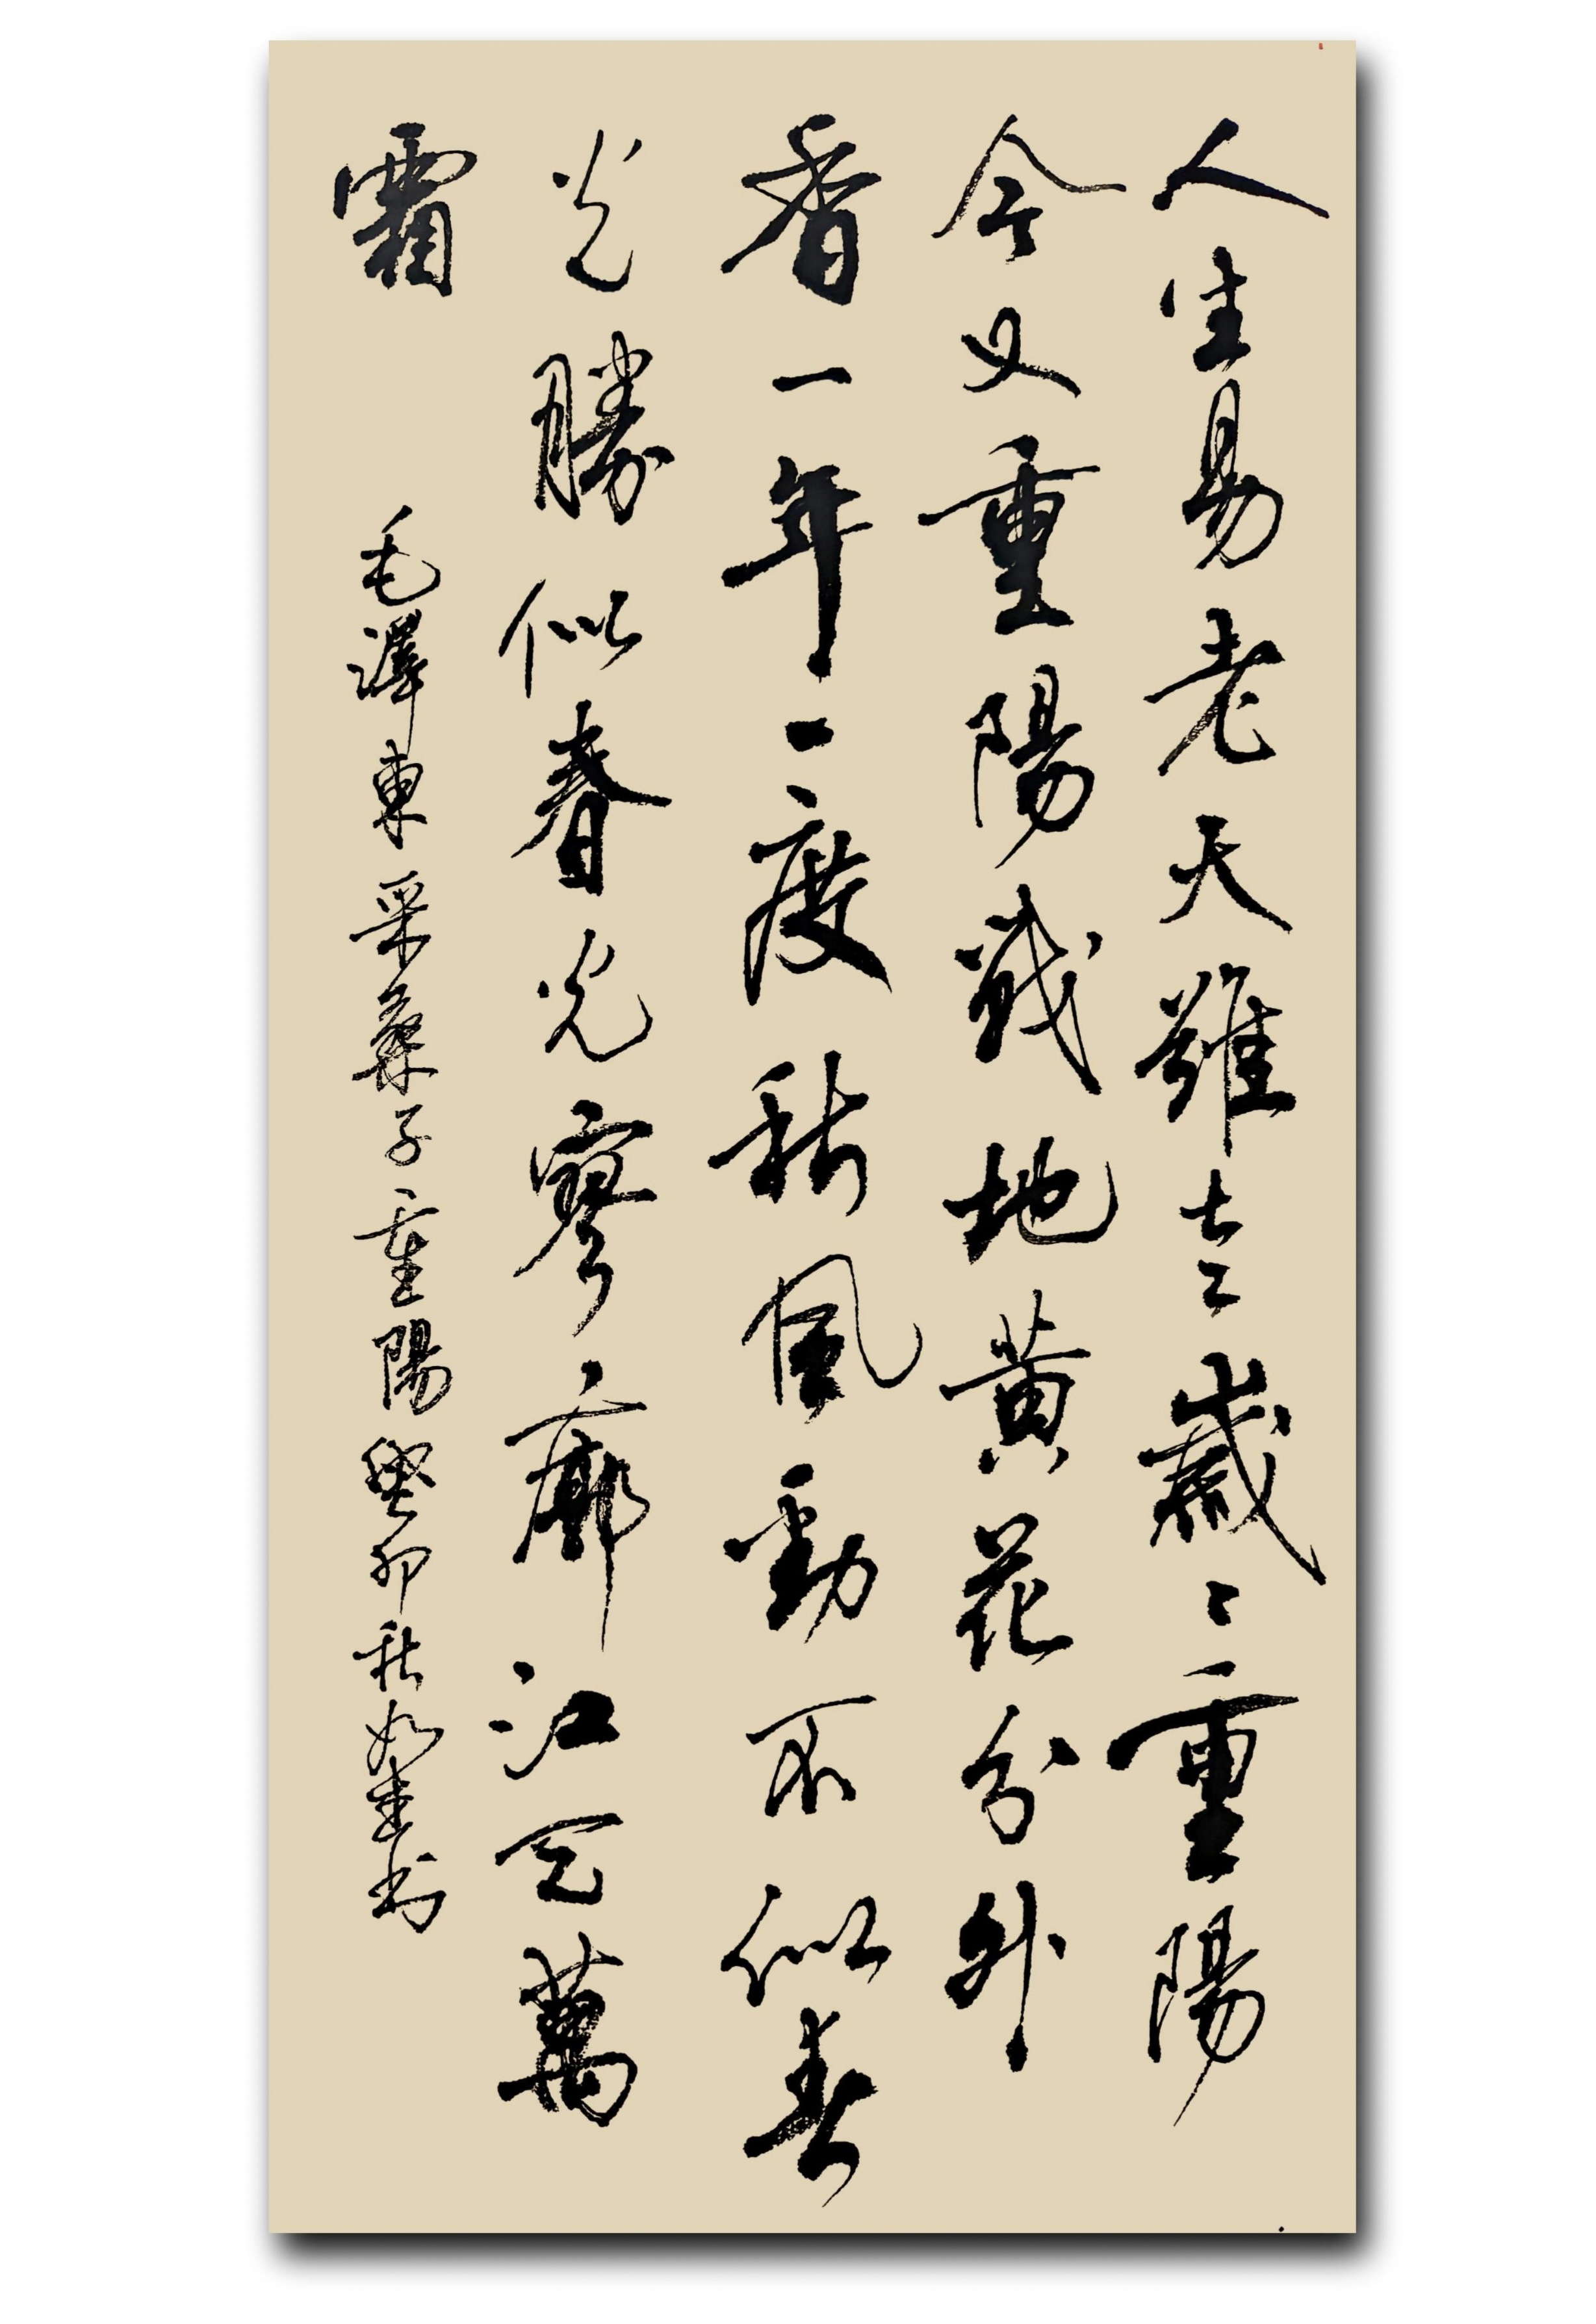 人生易老天難老歲〻重陽
今又重陽戰地黃花分外
香一年一度秋風勁不似春
光勝似春光寥廓江天萬
霜
毛澤東采桑子重陽癸卯秋如書